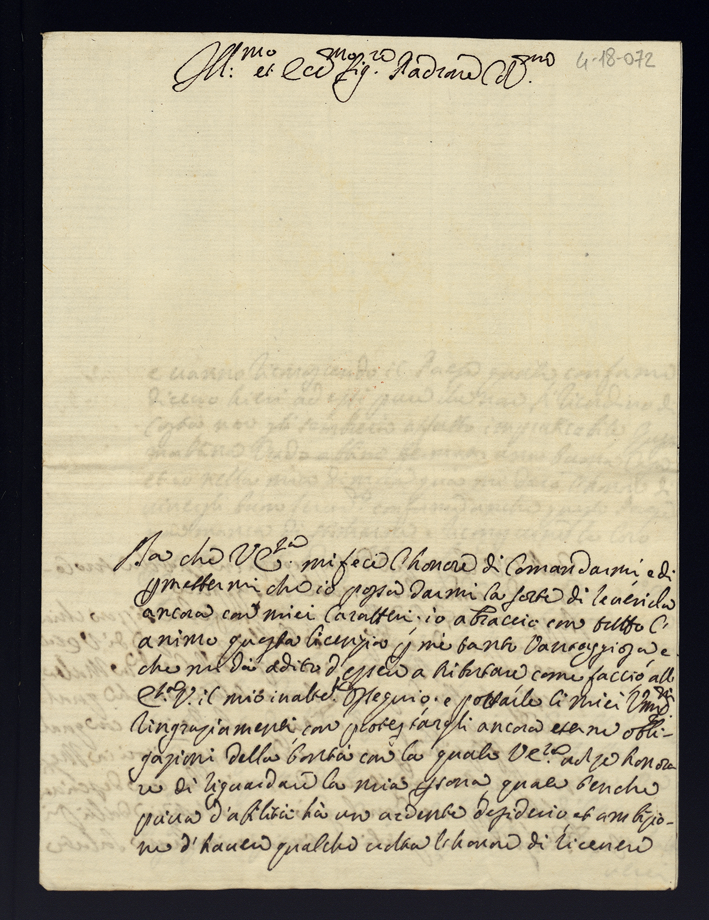 Ill:mo et Ecc.mo Sig.re Padrone Col.mo
4-18-072
Già che V.E.za mi fece l'honore di Comandarmi, e di
pmettermi che io possa darmi la sorte di reverirla
ancora con miei Caratteri; io abraccio con tutto l'
animo questa licenzia p me tanto vantaggiosa e
che mi dà adito d'essere a tributare come faccio all
E.za V. il mio inalte.le Ossequio. e portarle li miei Um.mi
ringraziamenti, con protestargli ancora eterne obli-
gazioni della bontà con la quale V.E.za si honora-
re di riguardare la mia psona quale benche
priva d'abilità hà un ardente desiderio et ambizio-
ne d'haver qualche volta l'honore di ricevere